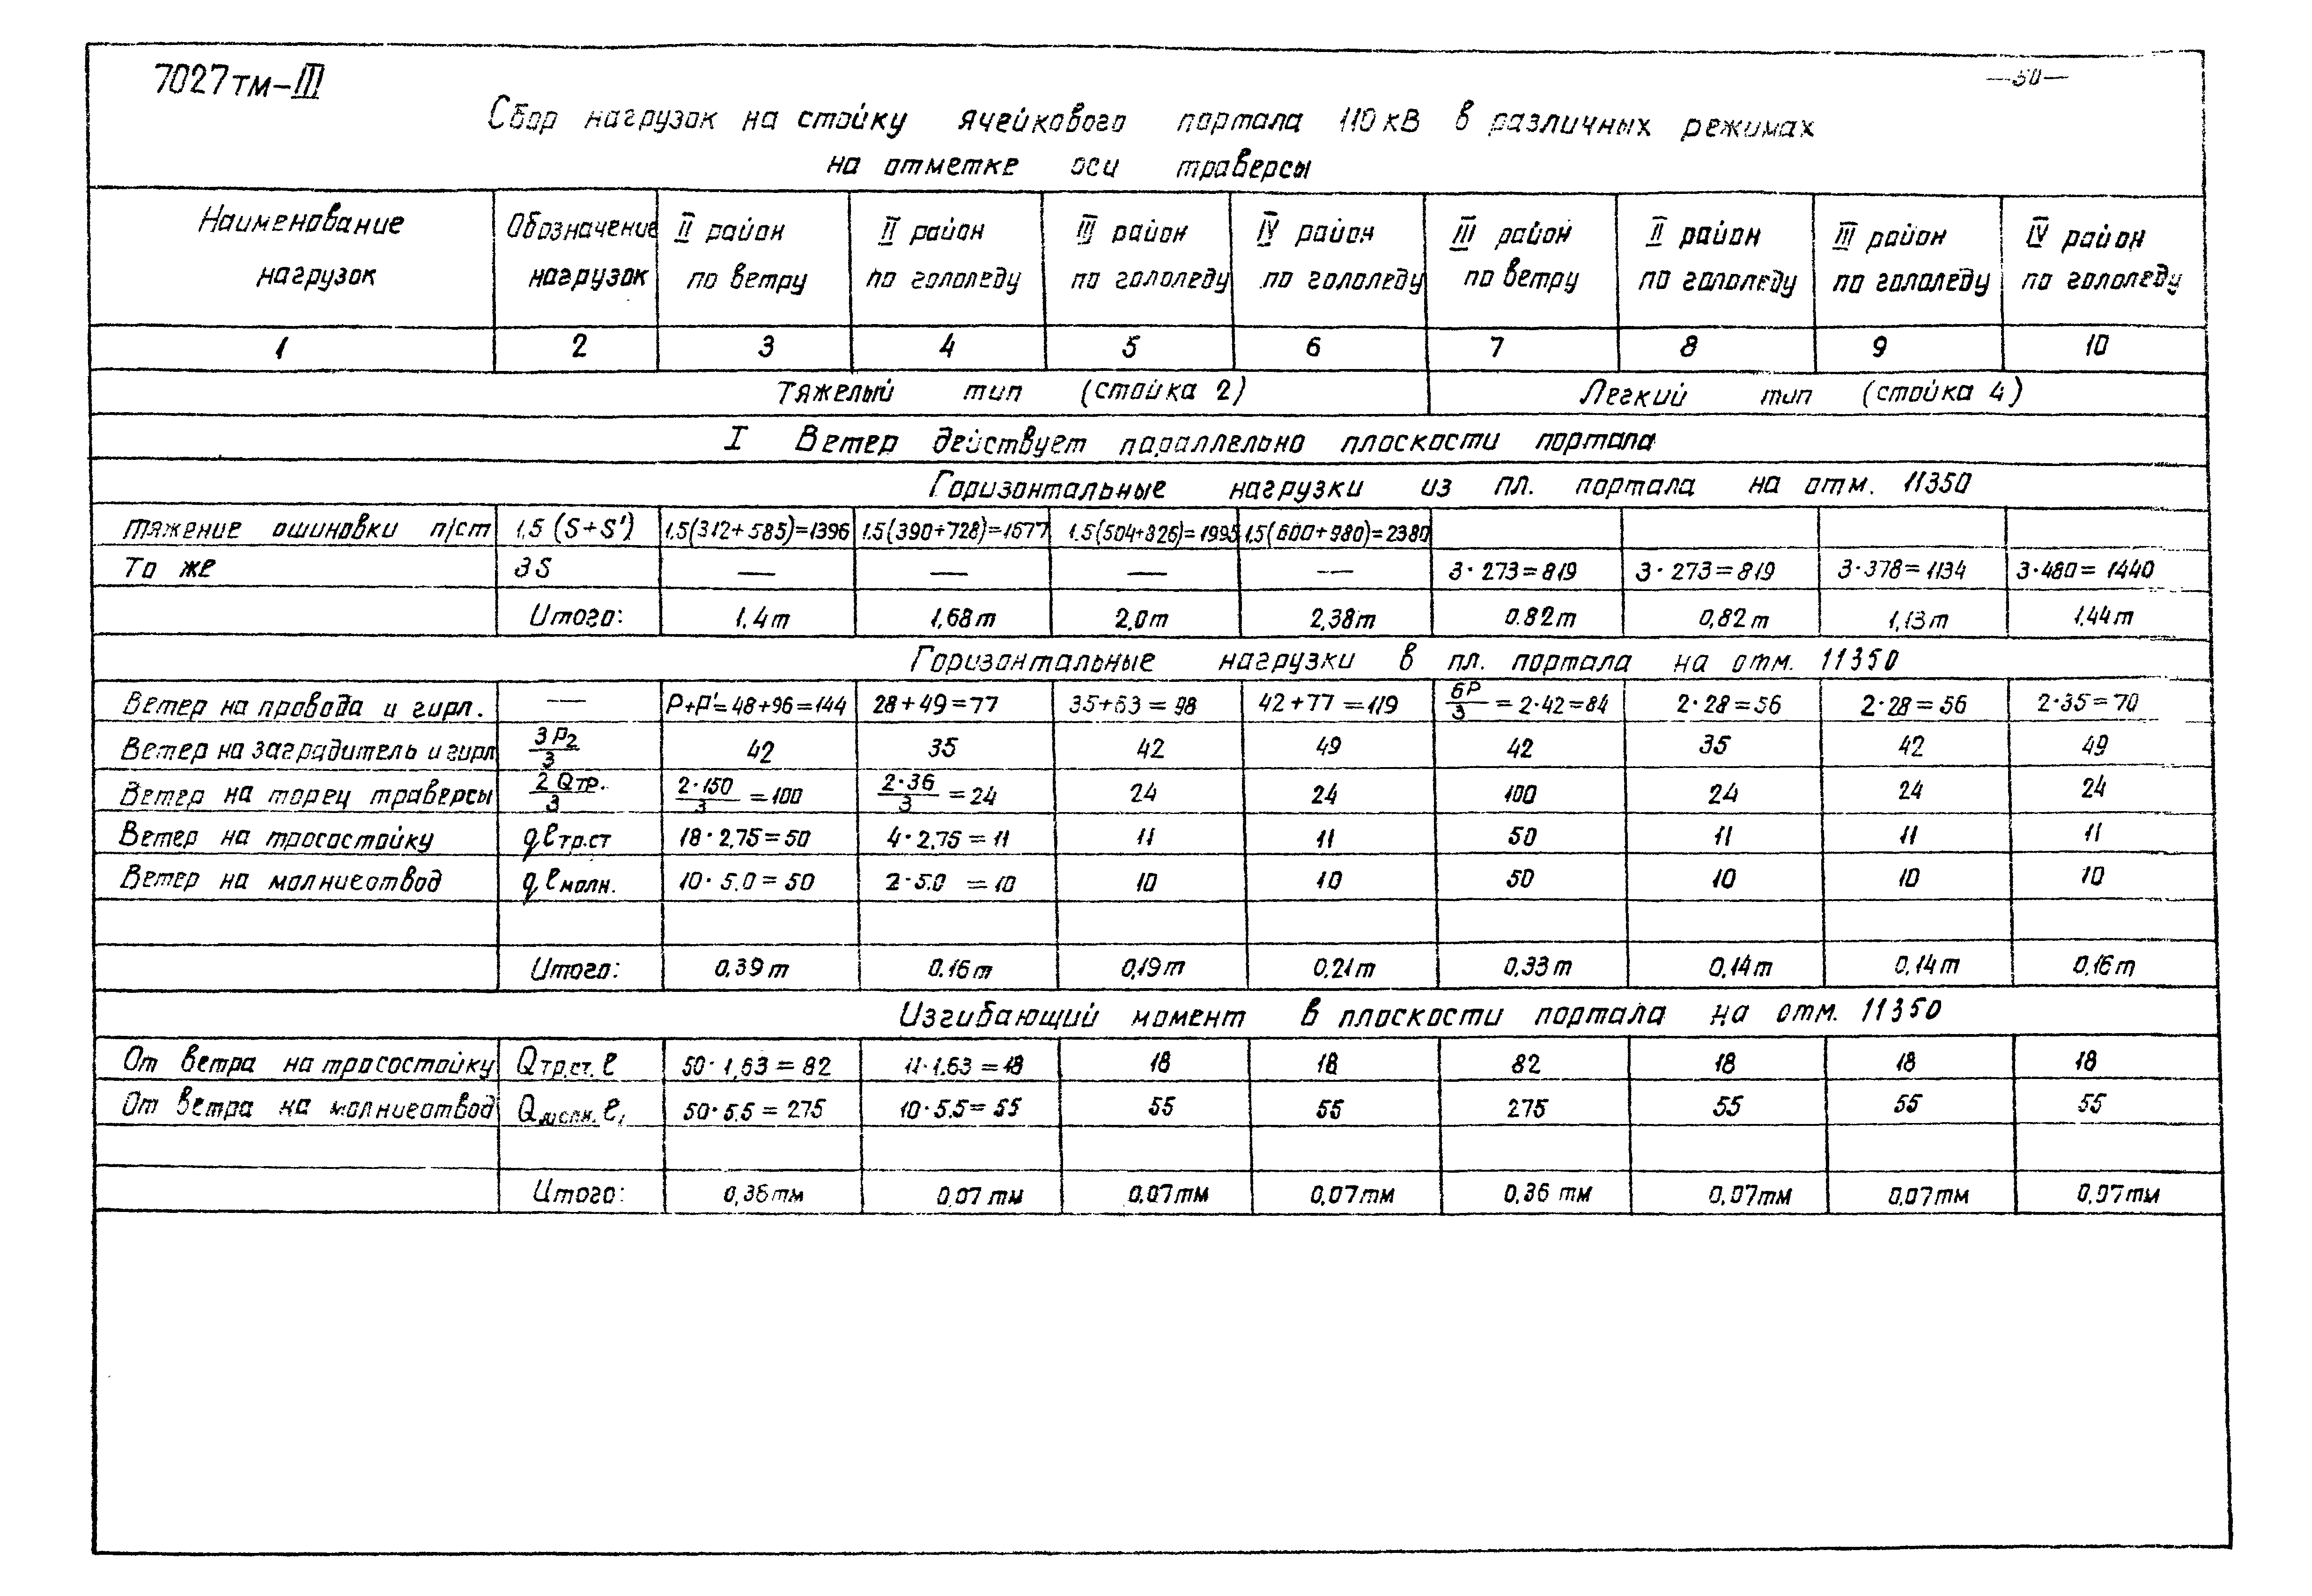 7027тм-III
—50—
Сбор нагрузок на стойку ячейкового портала 110 кВ в различных режимах
на отметке оси траверсы
Наименование нагрузок | Обозначение нагрузок | II район по ветру | II район по гололеду | III район по гололеду | IV район по гололеду | III район по ветру | II район по гололеду | III район по гололеду | IV район по гололеду
1 | 2 | 3 | 4 | 5 | 6 | 7 | 8 | 9 | 10
Тяжелый тип (стойка 2) | Легкий тип (стойка 4)
I Ветер действует параллельно плоскости портала
Горизонтальные нагрузки из пл. портала на отм. 11350
Тяжение ошиновки п/ст | 1,5 (S+S') | 1.5(312+585)=1396 | 1.5(390+728)=1677 | 1.5(504+826)=1995 | 1,5(600+980)=2380
То же | 3S | — | — | — | — | 3·273=819 | 3·273=819 | 3·378=1134 | 3·480=1440
Итого: | 1.4т | 1,68т | 2,0т | 2,38т | 0.82т | 0,82т | 1,13т | 1.44т
Горизонтальные нагрузки в пл. портала на отм. 11350
Ветер на провода и гирл. | — | P+P'=48+96=144 | 28+49=77 | 35+63=98 | 42+77=119 | 6P/3=2·42=84 | 2·28=56 | 2·28=56 | 2·35=70
Ветер на заградитель и гирл | 3P2/3 | 42 | 35 | 42 | 49 | 42 | 35 | 42 | 49
Ветер на торец траверсы | 2Qтр./3 | 2·150/3=100 | 2·36/3=24 | 24 | 24 | 100 | 24 | 24 | 24
Ветер на тросостойку | qℓтр.ст | 18·2,75=50 | 4·2,75=11 | 11 | 11 | 50 | 11 | 11 | 11
Ветер на молниеотвод | qℓмолн. | 10·5.0=50 | 2·5.0=10 | 10 | 10 | 50 | 10 | 10 | 10
Итого: | 0,39т | 0.16т | 0,19т | 0.21т | 0.33т | 0,14т | 0.14т | 0,16т
Изгибающий момент в плоскости портала на отм. 11350
От ветра на тросостойку | Qтр.ст. ℓ | 50·1,63=82 | 11·1.63=18 | 18 | 18 | 82 | 18 | 18 | 18
От ветра на молниеотвод | Qмолн. ℓ, | 50·5,5=275 | 10·5.5=55 | 55 | 55 | 275 | 55 | 55 | 55
Итого: | 0,36тм | 0,07тм | 0,07тм | 0,07тм | 0,36 тм | 0,07тм | 0,07тм | 0,07тм